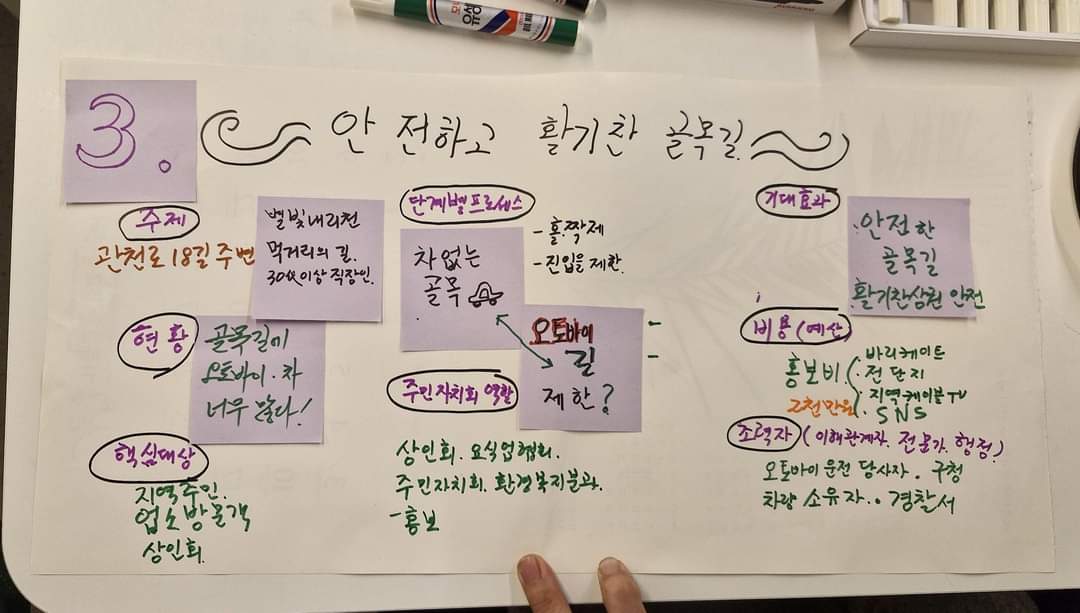 3.
안전하고 활기찬 골목길
주제
관천로 18길 주변
별빛내리천
먹거리의 길.
30代이상 직장인.
현황
골목길에
오토바이·차
너무 많다!
핵심대상
지역주민.
업소방문객
상인회.
단계별프로세스
차없는
골목
- 홀.짝제
- 진입을 제한.
오토바이
길
제한?
주민자치회 역할
상인회. 요식업협회.
주민자치회. 환경복지분과.
- 홍보
기대효과
안전한
골목길
활기찬상권 안전
비용(예산)
홍보비
2천만원
바리케이트
전단지
지역케이블TV
SNS
조력자 (이해관계자. 전문가. 행정.)
오토바이 운전 당사자. 구청
차량 소유자.. 경찰서